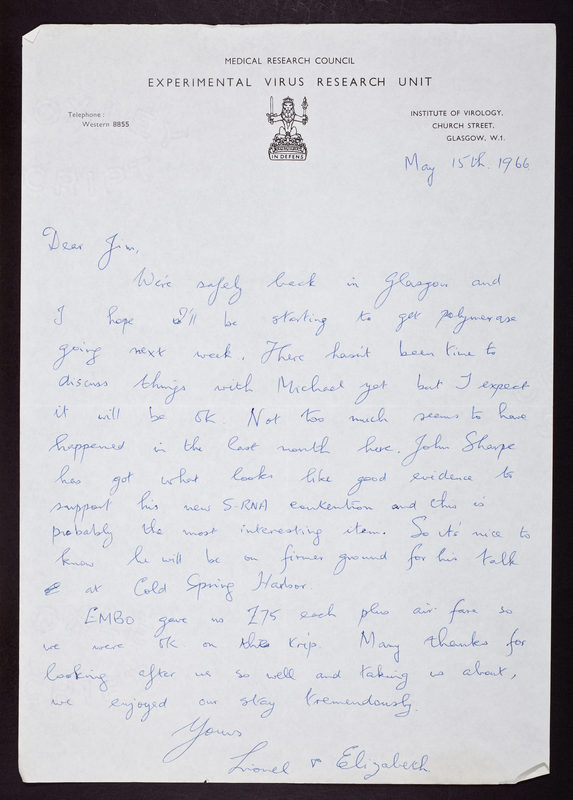 MEDICAL RESEARCH COUNCIL
EXPERIMENTAL VIRUS RESEARCH UNIT
Telephone :
Western 8855
IN DEFENS
INSTITUTE OF VIROLOGY,
CHURCH STREET,
GLASGOW, W.1.
May 15th. 1966
Dear Jim,
We're safely back in Glasgow and
I hope I'll be starting to get polymerase
going next week. There hasn't been time to
discuss things with Michael yet but I expect
it will be ok. Not too much seems to have
happened in the last month here. John Sharpe
has got what looks like good evidence to
support his new S-RNA contention and this is
probably the most interesting item. So it's nice to
know he will be on firmer ground for his talk
at Cold Spring Harbor.
EMBO gave us £75 each plus air fare so
we were ok on the trip. Many thanks for
looking after us so well and taking us about,
we enjoyed our stay tremendously.
Yours
Lionel & Elizabeth.